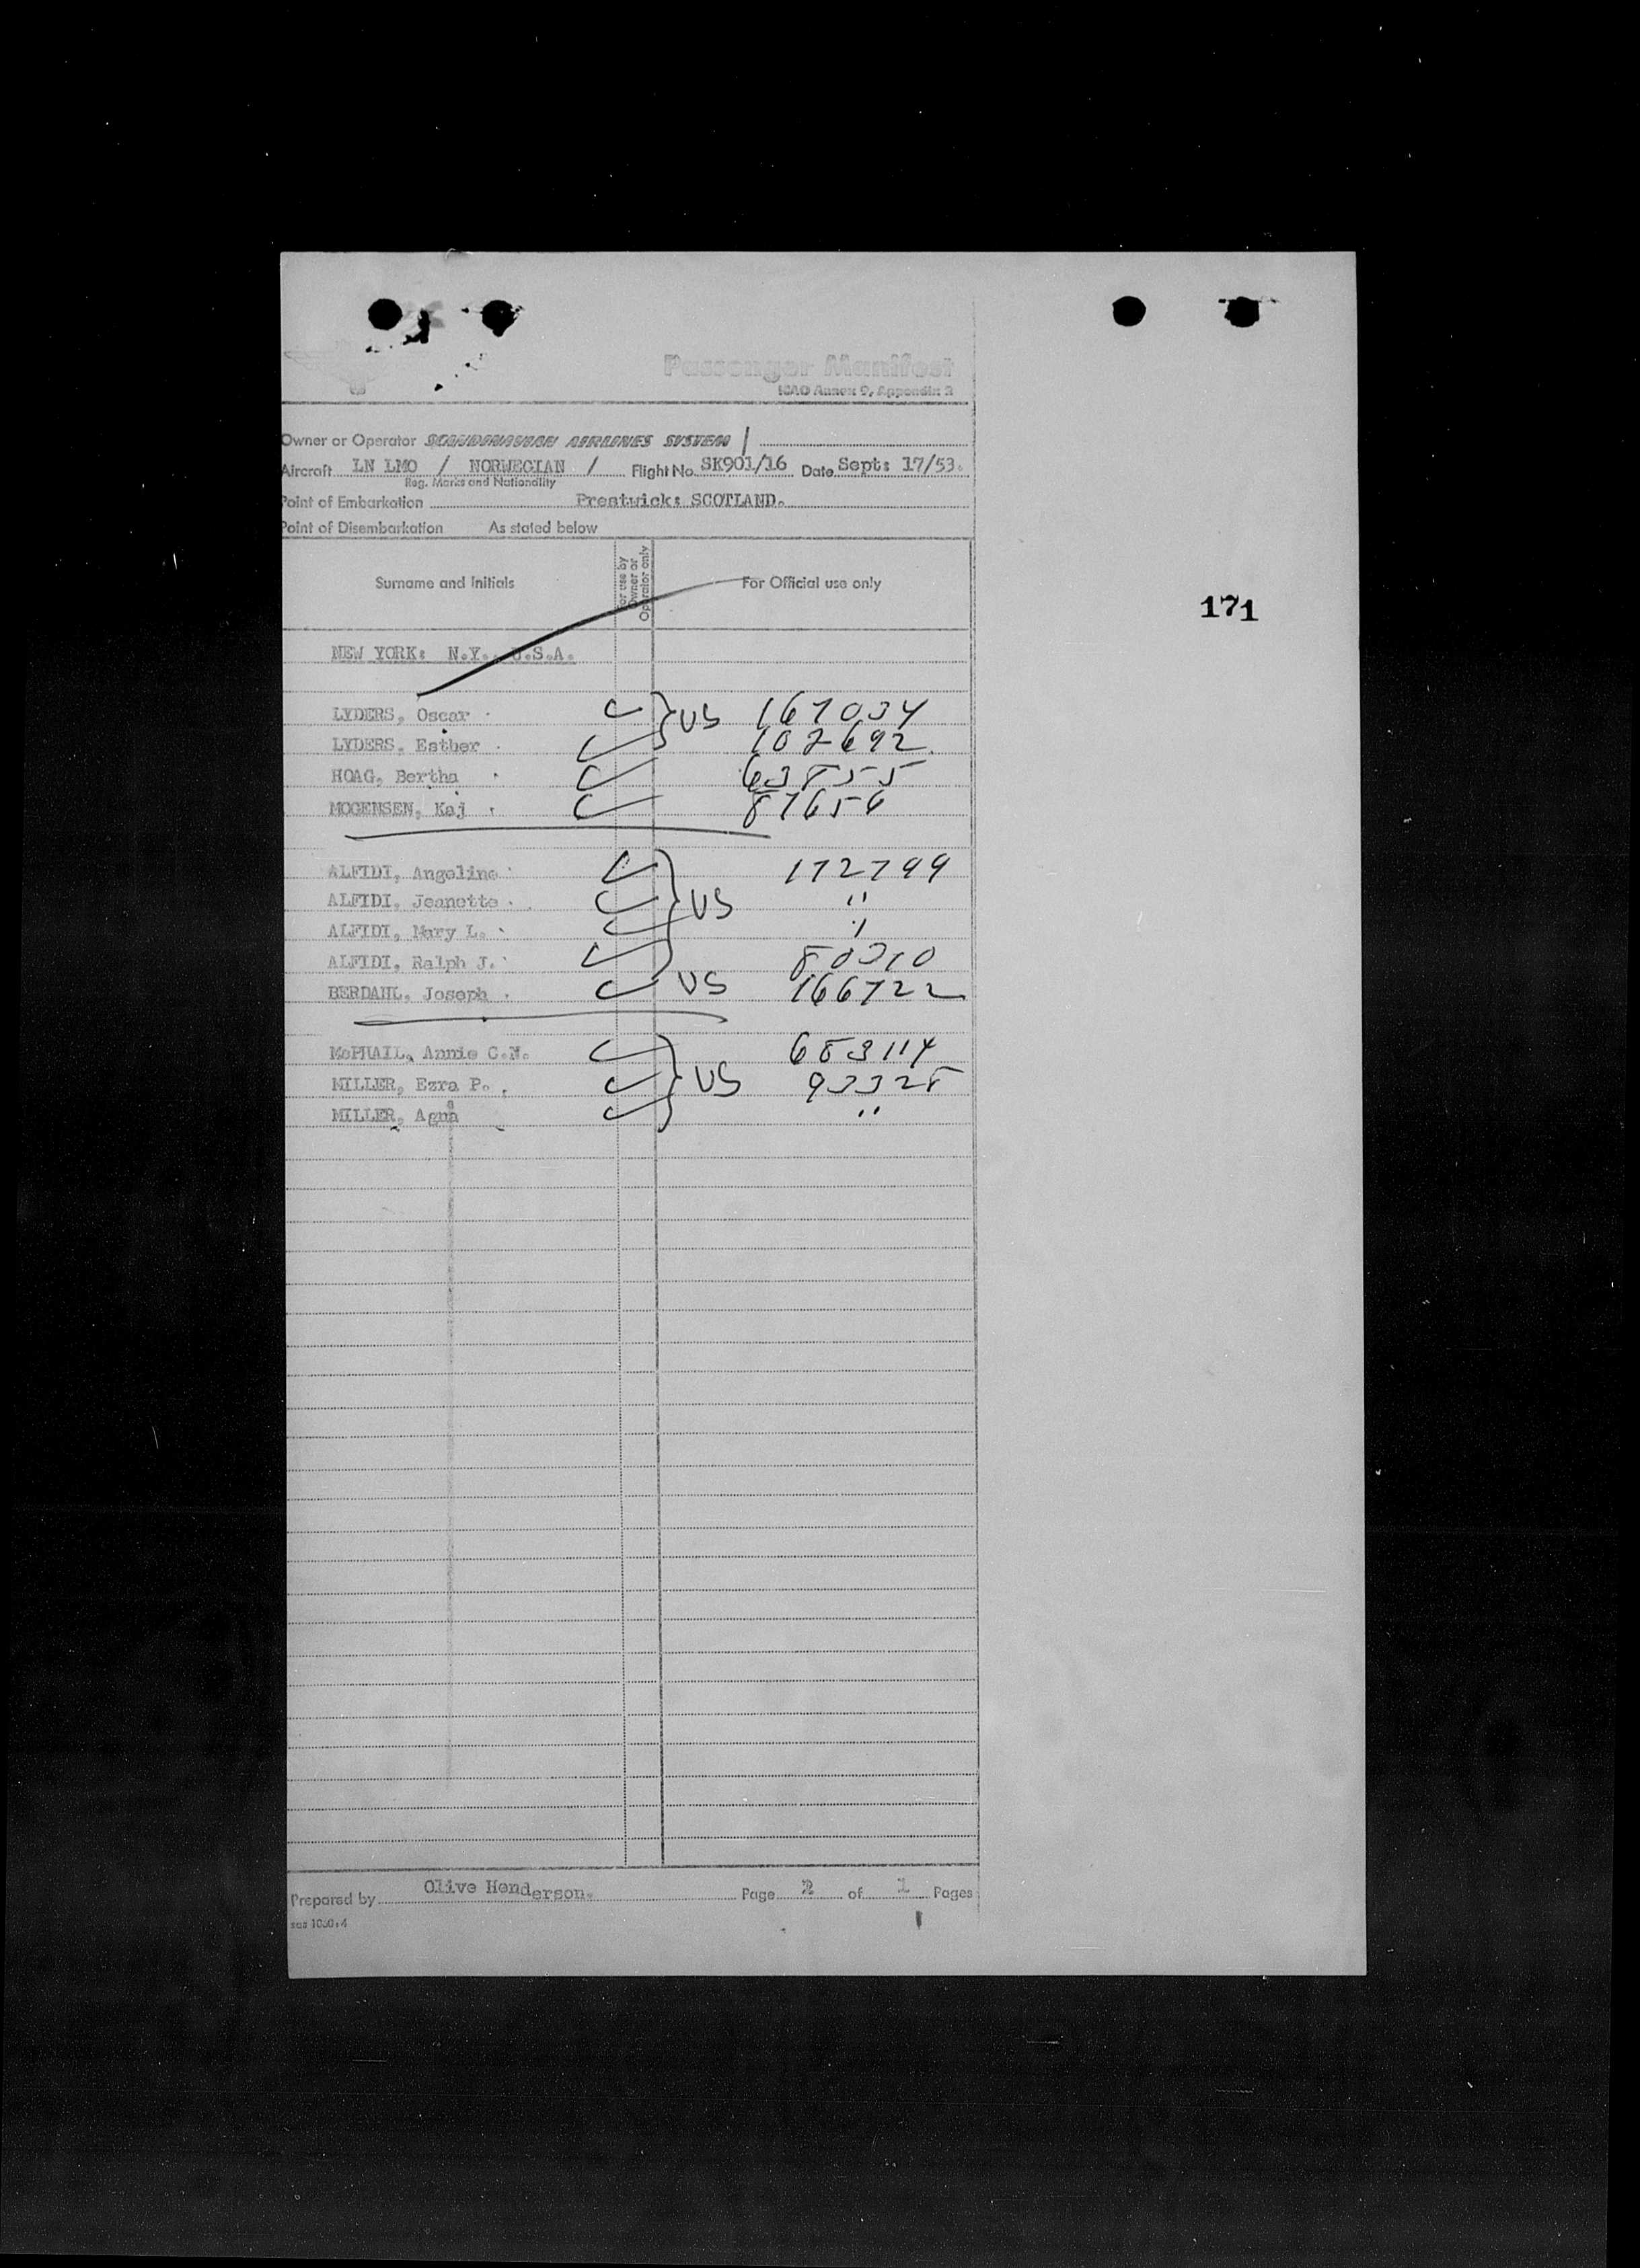 Passenger Manifest
ICAO Annex 9, Appendix 3
Owner or Operator SCANDINAVIAN AIRLINES SYSTEM
Aircraft LN LMO / NORWEGIAN / Flight No. SK901/16 Date Sept: 17/53.
Reg. Marks and Nationality
Point of Embarkation Prestwick: SCOTLAND.
Point of Disembarkation As stated below
Surname and Initials For use by Owner or Operator only For Official use only
171
NEW YORK: N.Y. U.S.A.
LYDERS, Oscar US 167034
LYDERS, Esther 102692
HOAG, Bertha 638755
MOGENSEN, Kaj 87656
ALFIDI, Angeline 172799
ALFIDI, Jeanette US "
ALFIDI, Mary L. "
ALFIDI, Ralph J. 80310
BERDAHL, Joseph US 166722
McPHAIL, Annie C.N. 683114
MILLER, Ezra P. US 93328
MILLER, Agna "
Prepared by Olive Henderson. Page 2 of 1 Pages